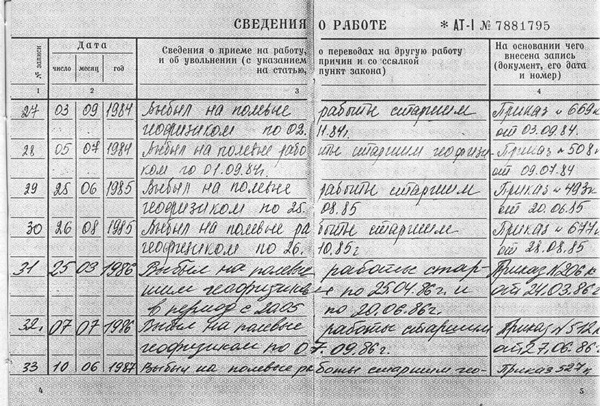 СВЕДЕНИЯ О РАБОТЕ * АТ-I № 7881795
№ записи
Дата
число месяц год
Сведения о приеме на работу, о переводах на другую работу
и об увольнении (с указанием причин и со ссылкой
на статью, пункт закона)
На основании чего
внесена запись
(документ, его дата
и номер)
1 2 3 4
27 03 09 1984 Выбыл на полевые работы старшим Приказ № 669к
геофизиком по 02. 11.84г. от 03.09.84.
28 05 07 1984 Выбыл на полевые работы старшим геофизи- Приказ № 508к
ком по 01.09.84г. от 09.07.84
29 25 06 1985 Выбыл на полевые работы старшим Приказ № 493к
геофизиком по 25. 08.85 от 20.06.85
30 26 08 1985 Выбыл на полевые работы старшим Приказ № 677к
геофизиком по 26. 10.85г от 28.08.85
31 25 03 1986 Выбыл на полевые работы стар- Приказ №206к
шим геофизиком по 25.04.86г. и от 24.03.86г
в период с 20.05 по 20.06.86г.
32. 07 07 1986 Выбыл на полевые работы старшим Приказ №512к
геофизиком по 07.09.86г. от 27.06.86г
33 10 06 1987 Выбыл на полевые работы старшим гео- Приказ 327к
4 5